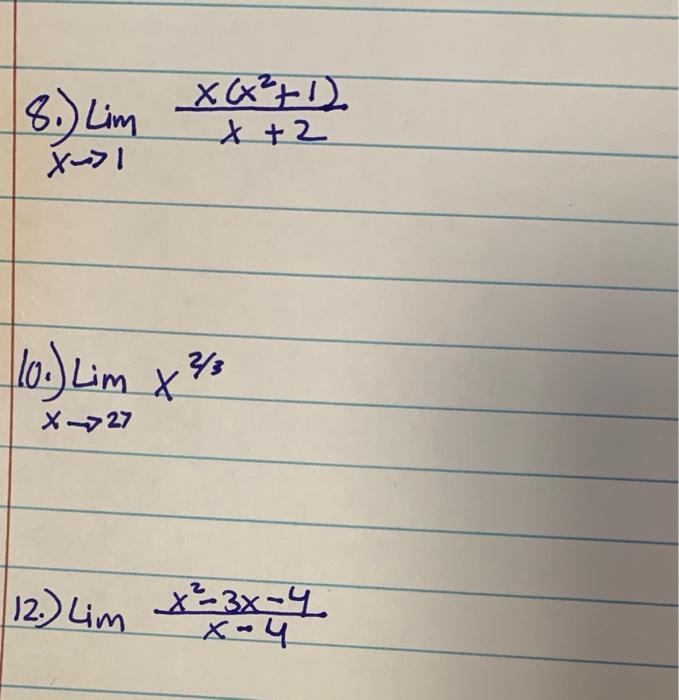 8.) Lim x(x²+1) / x + 2
x→1
10.) Lim x^2/3
x→27
12.) Lim x²-3x-4 / x-4